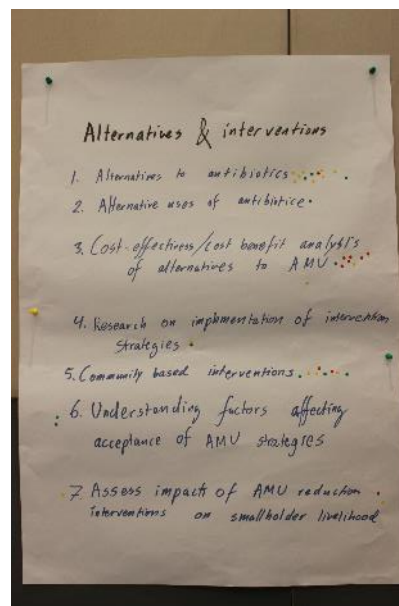 Alternatives & interventions
1. Alternatives to antibiotics
2. Alternative uses of antibiotice
3. Cost-effectivess/cost benefit analysis
of alternatives to AMU
4. Research on implmentation of intervention
strategies
5. Community based interventions
6. Understanding factors affecting
acceptance of AMU strategies
7. Assess impacts of AMU reduction
interventions on smallholder livelihood